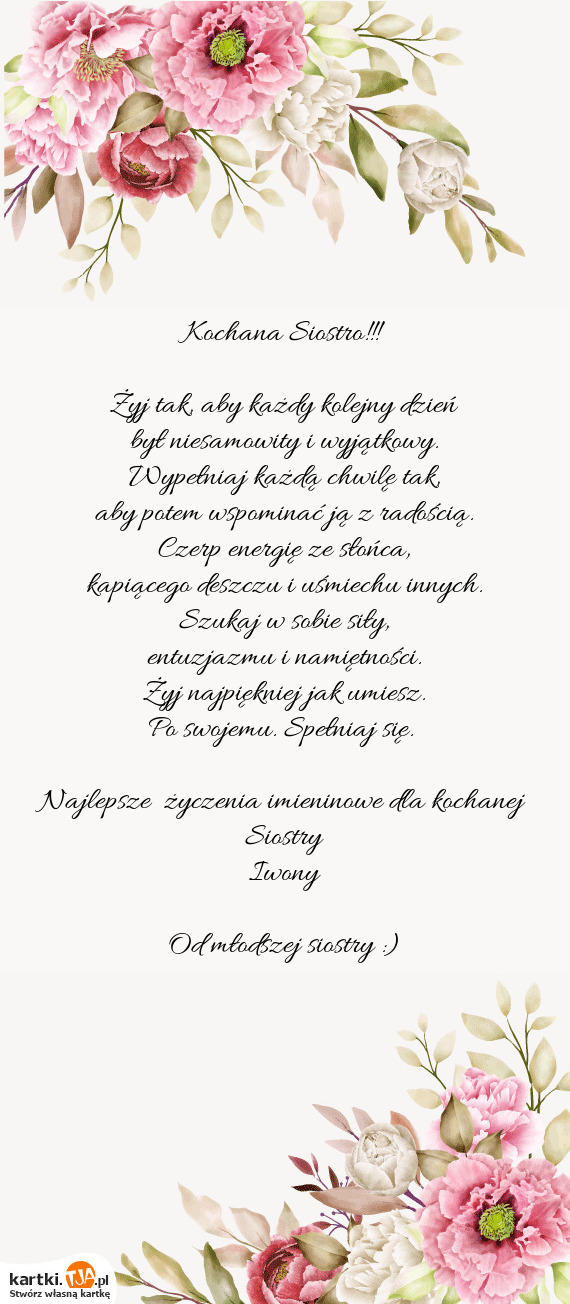 Kochana Siostro!!!
Żyj tak, aby każdy kolejny dzień
był niesamowity i wyjątkowy.
Wypełniaj każdą chwilę tak,
aby potem wspominać ją z radością.
Czerp energię ze słońca,
kapiącego deszczu i uśmiechu innych.
Szukaj w sobie siły,
entuzjazmu i namiętności.
Żyj najpiękniej jak umiesz.
Po swojemu. Spełniaj się.
Najlepsze życzenia imieninowe dla kochanej
Siostry
Iwony
Od młodszej siostry :)
kartki.TJA.pl
Stwórz własną kartkę